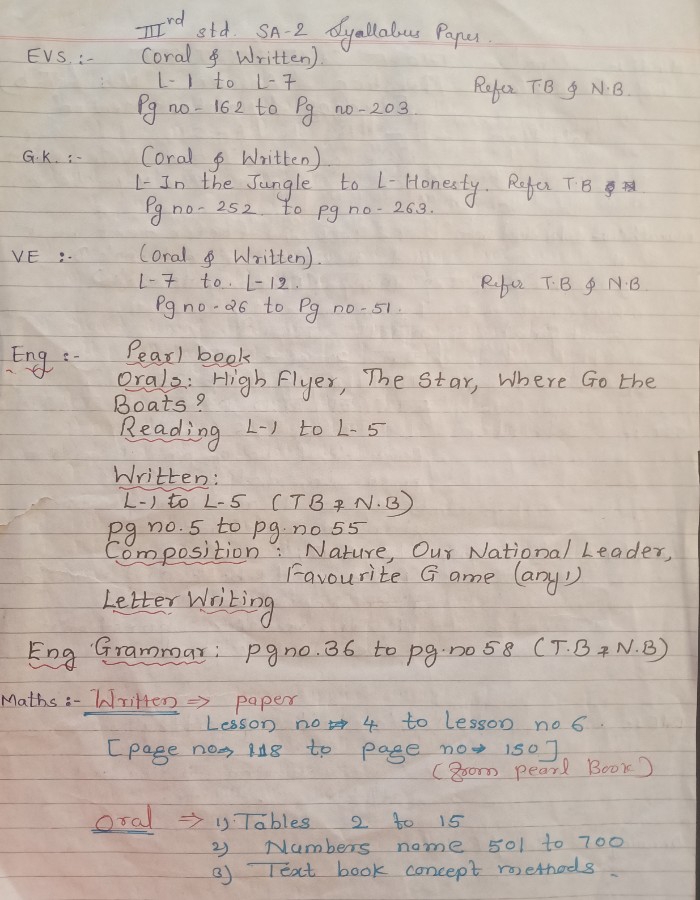 IIIrd std. SA-2 Syallabus Paper.
EVS :- (Oral & Written).
L-1 to L-7 Refer T.B & N.B.
Pg no - 162 to Pg no - 203
G.K. :- (Oral & Written)
L- In the Jungle to L- Honesty. Refer T.B &
Pg no - 252 to pg no - 263.
VE :- (Oral & Written).
L-7 to L-12. Refer T.B & N.B
Pg no - 26 to Pg no - 51.
Eng :- Pearl book
Orals: High Flyer, The Star, Where Go the
Boats?
Reading L-1 to L-5
Written:
L-1 to L-5 (TB & N.B)
pg no. 5 to pg. no 55
Composition : Nature, Our National Leader,
Favourite Game (any 1)
Letter Writing
Eng Grammar: pg no. 36 to pg. no 58 (T.B & N.B)
Maths :- Written ⇒ paper
Lesson no → 4 to lesson no 6.
[page no → 118 to page no → 150]
(From pearl Book)
Oral ⇒ 1) Tables 2 to 15
2) Numbers name 501 to 700
3) Text book concept methods.